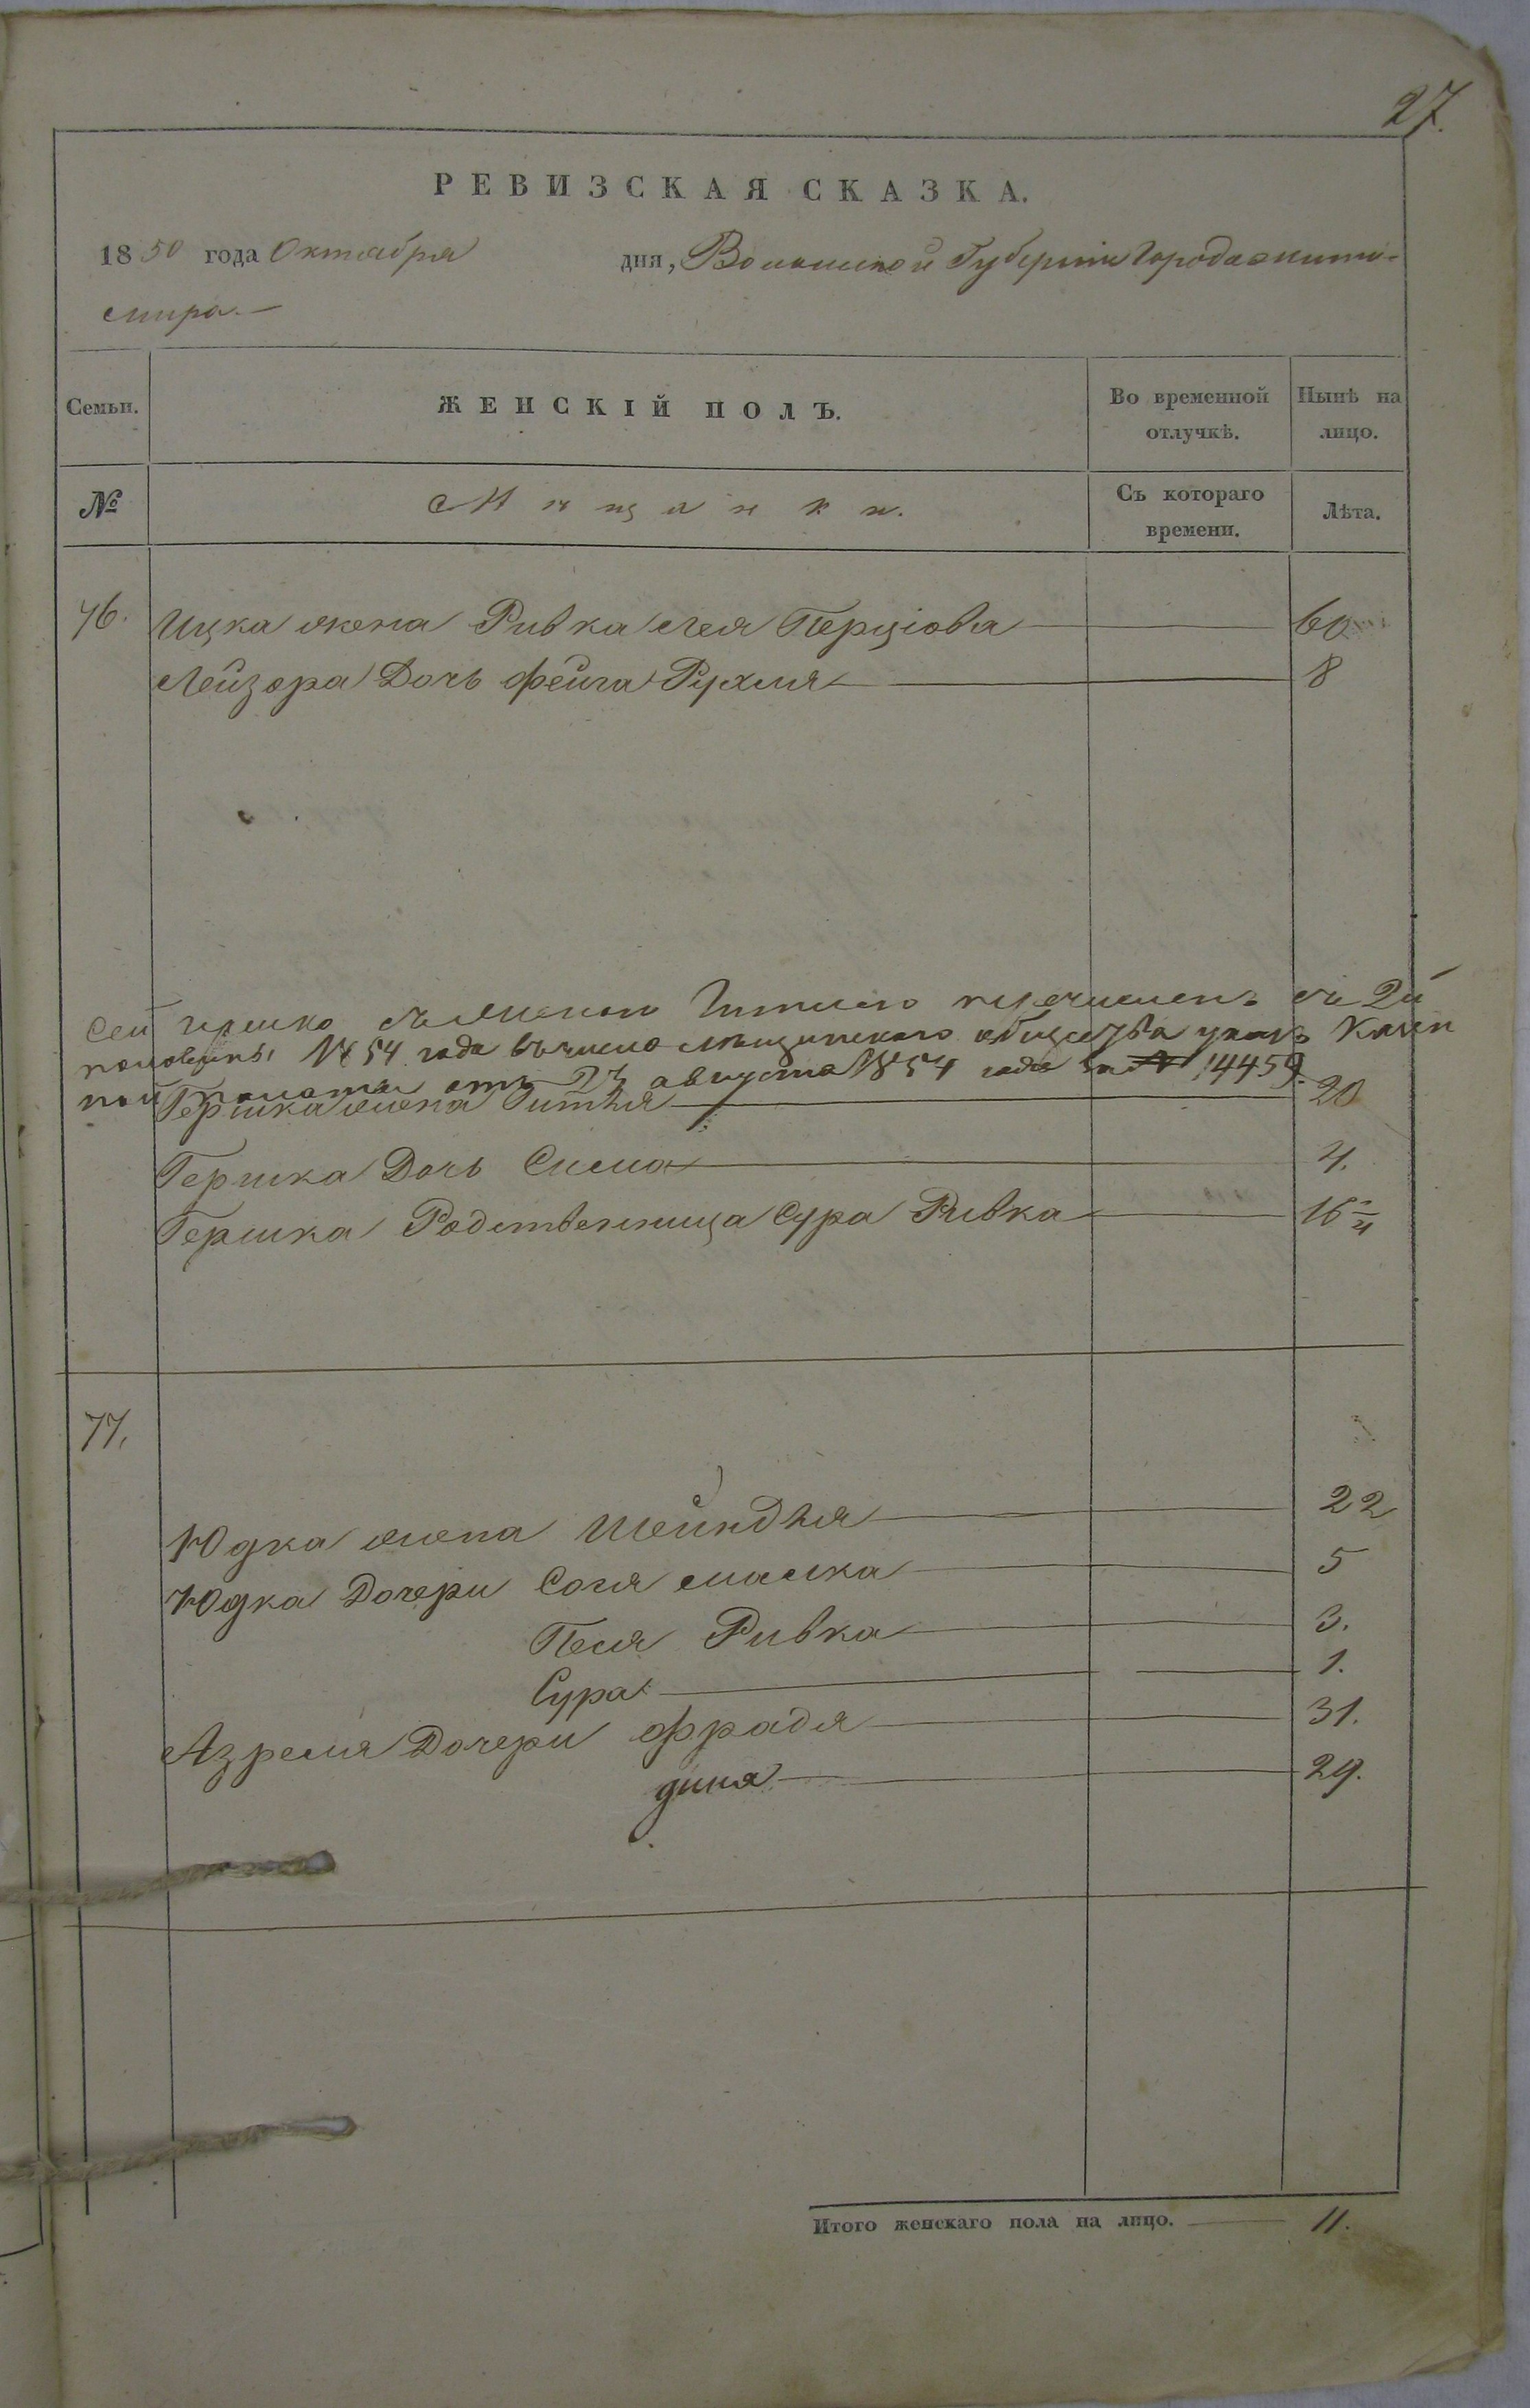 27.
РЕВИЗСКАЯ СКАЗКА.
1850 года Октября дня, Волынской Губерніи Города Жито-
мира.—
Семьи. ЖЕНСКІЙ ПОЛЪ. Во временной отлучкѣ. Нынѣ на лицо.
№ Мѣщанки. Съ котораго времени. Лѣта.
76. Ицка жена Ривка Лея Перціова 60
Лейзора Дочь Фейга Рухля 8
Сей Гершко съ женою Гитлею перечисленъ съ 2й
половины 1854 года въ число мѣщанскаго общества указъ Казен
ной палаты отъ 23 августа 1854 года за № 14459.
Гершка жена Гитля 20
Гершка Дочь Сисла 4.
Гершка Родственница Сура Ривка 16
77.
Юдка жена Шейндля 22
Юдка Дочери Сося Малка 5
Песя Ривка 3.
Сура 1.
Азрелия Дочери Фрадя 31.
Дина 29.
Итого женскаго пола на лицо. 11.